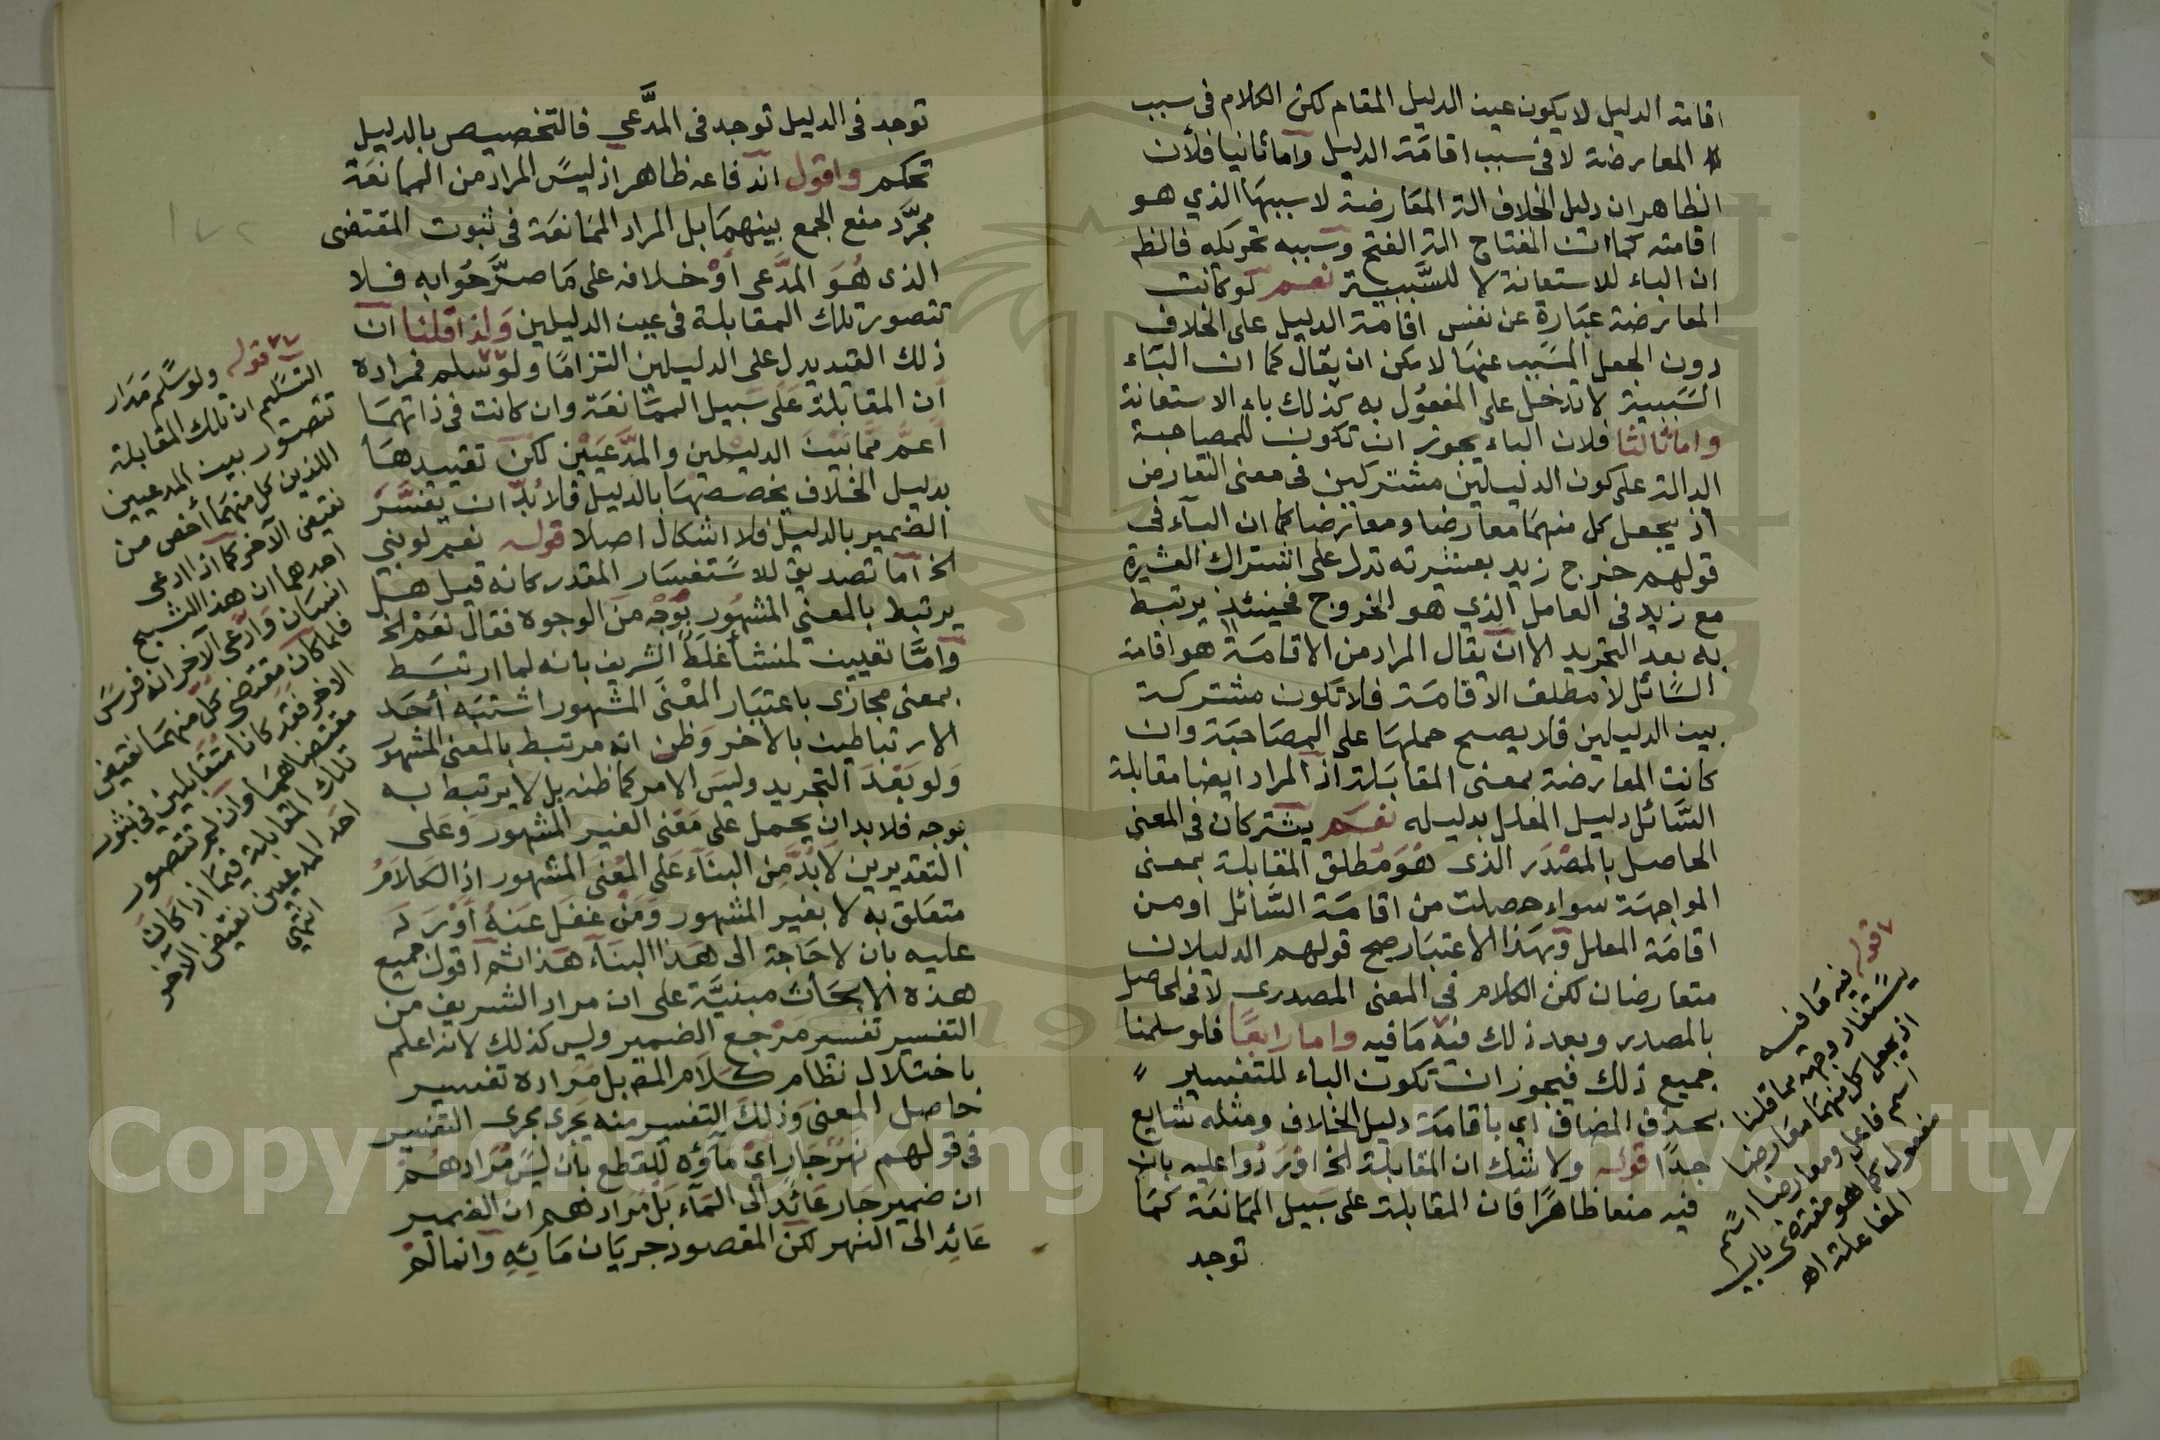 اقامة الدليل لا يكون عين الدليل المقام لكن الكلام فى سبب
المعارضة لا فى سبب اقامة الدليل وأما ثانيا فلأن
الظاهر ان دليل الخلاف الة المعارضة لا سببها الذي هو
اقامته كما ان المفتاح الة الفتح وسببه تحريكه فالظم
ان الباء للاستعانة لا للسببية نعم لو كانت
المعارضة عبارة عن نفس اقامة الدليل على الخلاف
دون الجعل المسبب عنها لا يمكن ان يقال كما ان الباء
السببية لا تدخل على المفعول به كذلك باء الاستعانة
واما ثالثا فلان الباء يجوز ان تكون للمصاحبة
الدالة على كون الدليلين مشتركين فى معنى التعارض
اذ يجعل كل منهما معارضا ومعارضا كما ان الباء فى
قولهم خرج زيد بعشيرته تدل على اشتراك العشيرة
مع زيد فى العامل الذي هو الخروج فحينئذ يرتبط
به بعد التجريد الا ان يقال المراد من الاقامة هو اقامة
السائل لا مطلق الاقامة فلا تكون مشتركة
بين الدليلين فلا يصح حملها على المصاحبة وان
كانت المعارضة بمعنى المقابلة اذ المراد ايضا مقابلة
السائل دليل المعلل بدليله نعم يشتركان فى المعنى
الحاصل بالمصدر الذى هو مطلق المقابلة بمعنى
المواجهة سواء حصلت من اقامة السائل او من
اقامة المعلل وبهذا الاعتبار صح قولهم الدليلان
متعارضان لكن الكلام فى المعنى المصدرى لا فى الحاصل
بالمصدر وبعد ذلك فيه ما فيه واما رابعا فلو سلمنا
جميع ذلك فيجوز ان تكون الباء للتفسير
بحذف المضاف اي باقامة دليل الخلاف ومثله شايع
جدا قوله ولا شك ان المقابلة الخ اوردوا عليه بان
فيه منعا ظاهرا فان المقابلة على سبيل الممانعة كما
توجد
قوله فيه ما فيه
يستفاد وجهه مما قلنا
اذ يجعل كل منهما معارضا
اسم فاعل ومعارضا اسم
مفعول كما هو مقتضى باب
المفاعلة اه
توجد فى الدليل توجد فى المدعى فالتخصيص بالدليل
تحكم واقول اندفاعه ظاهر اذ ليس المراد من الممانعة
مجرد منع الجمع بينهما بل المراد الممانعة فى ثبوت المقتضى
الذى هو المدعى أو خلافه على ما صرحوا به فلا
تتصور تلك المقابلة فى عين الدليلين ولذا قلنا ان
ذلك القيد يدل على الدليلين التزاما ولو سلم فمراده
ان المقابلة على سبيل الممانعة وان كانت فى ذاتهما
أعم مما بين الدليلين والمدعيين لكن تقييدها
بدليل الخلاف يخصصها بالدليل فلا بد ان يفسر
الضمير بالدليل فلا اشكال اصلا قوله نعم لو بني
الخ اما تصديق للاستفسار المقدر كانه قيل هل
يرتبط بالمعنى المشهور بوجه من الوجوه فقال نعم الخ
واما تعيين لمنشأ غلط الشريف بانه لما ارتبط
بمعنى مجازى باعتبار المعنى المشهور اشتبه أحد
الارتباطين بالاخر وظن انه مرتبط بالمعنى المشهور
ولو بعد التجريد وليس الامر كما ظنه بل لا يرتبط به
بوجه فلا بد ان يحمل على معنى الغير المشهور وعلى
التقديرين لا بد من البناء على المعنى المشهور اذ الكلام
متعلق به لا بغير المشهور ومن غفل عنه أورد
عليه بان لا حاجة الى هذا البناء هذا ثم اقول جميع
هذه الابحاث مبنية على ان مراد الشريف من
التفسير تفسير مرجع الضمير وليس كذلك لانه اعلم
باختلال نظام كلام المص بل مراده تفسير
حاصل المعنى وذلك التفسير منه يجرى مجرى التفسير
فى قولهم نهر جار أي مآؤه للقطع بان ليس مرادهم
ان ضمير جار عائد الى الماء بل مرادهم ان الضمير
عائد الى النهر لكن المقصود جريان مائه وانما لم
قوله ولو سلم مدار
التسليم ان تلك المقابلة
تتصور بين المدعيين
اللذين كل منهما أخص من
نقيض الآخر كما اذا ادعى
احدهما ان هذا الشبح
انسان وادعى الآخر انه فرس
فلما كان مقتضى كل منهما نقيض
الاخر فقد كانا متقابلين فى ثبوت
مقتضاهما وان لم تتصور
تلك المقابلة فيما اذا كان
احد المدعيين نقيض الآخر
انتهى
Copyright © King Saud University